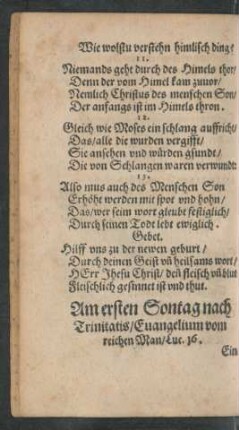 Wie wolstu verstehn himlisch dinge
11.
Niemands geht durch des Himels thor/
Denn der vom Himel kam zuuor/
Nemlich Christus des menschen Son/
Der anfangs ist im Himels thron.
12.
Gleich wie Moses ein schlang auffricht/
Das/alle die wurden vergifft/
Sie ansehen vnd würden gsundt/
Die von Schlangen waren verwundet
13.
Also mus auch des Menschen Son
Erhöht werden mit spot vnd hohn/
Das/wer seim wort gleubt festiglich/
Durch seinen Todt lebt ewiglich.
Gebet.
Hilff vns zu der newen geburt/
Durch deinen Geist vñ heilsams wort/
HErr Jhesu Christ/ deñ fleisch vñ blut
Fleischlich gesinnet ist vnd thut.
Am ersten Sontag nach
Trinitatis/Euangelium vom
reichen Man/Luc. 16.
Ein